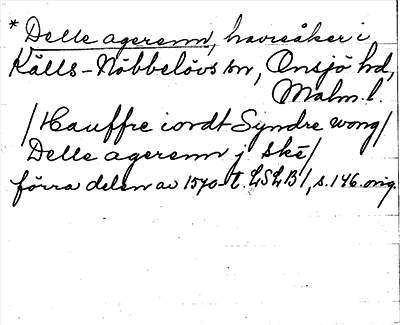 * Delle agerenn, havreåker i
Källs-Nöbbelövs sn, Onsjö hd,
Malm. l.
/Hauffre iordt Syndre wong/
Delle agerenn j ske/
förra delen av 1570-t. LSLB/, s. 146. orig.